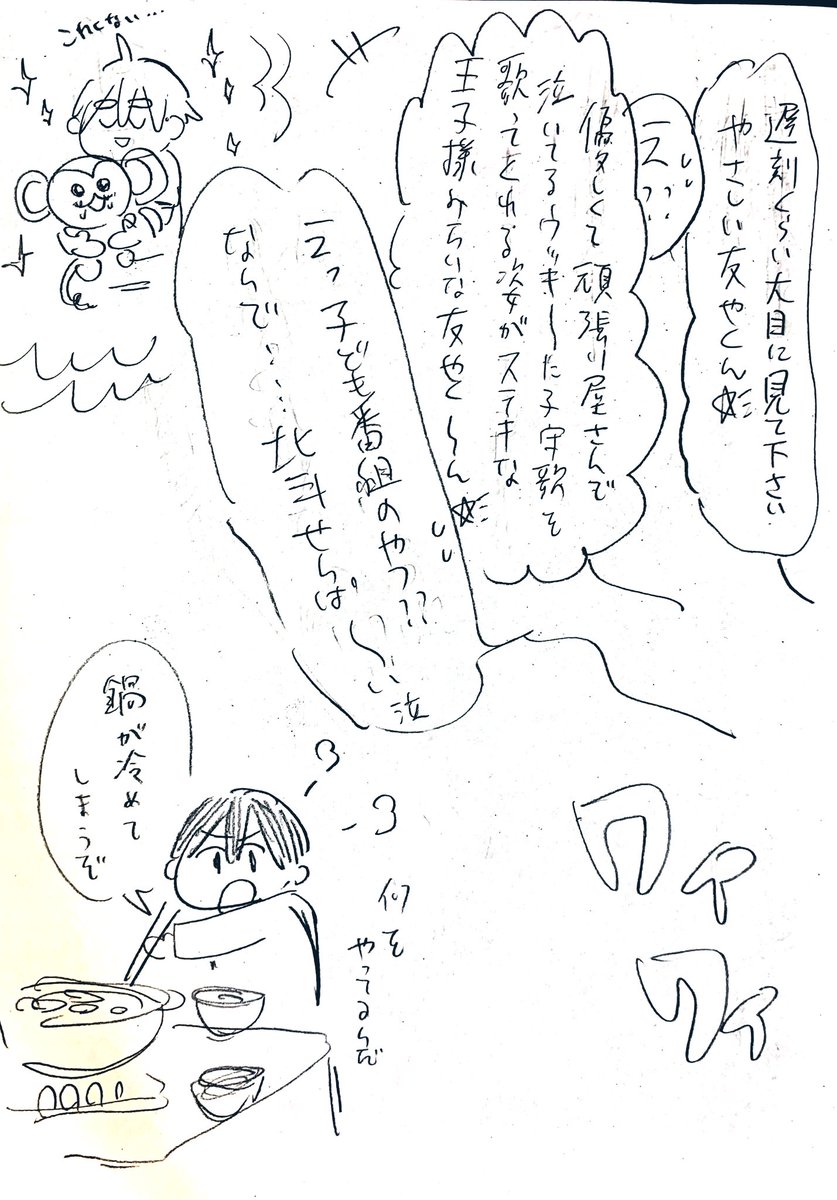 遅刻くらい大目に見て下さい
やさしい友やくん☆彡
え??
優しくて頑張り屋さんで
泣いてるウッキ〜た子守歌を
歌ってくれる姿がステキな
王子様みたいな友やく〜ん☆彡
えっ子ども番組のやつ??
なんで……北斗せんぱ〜い泣
これくない…
鍋が冷めて
しまうぞ
何を
やってるんだ
ワイ
ワイ